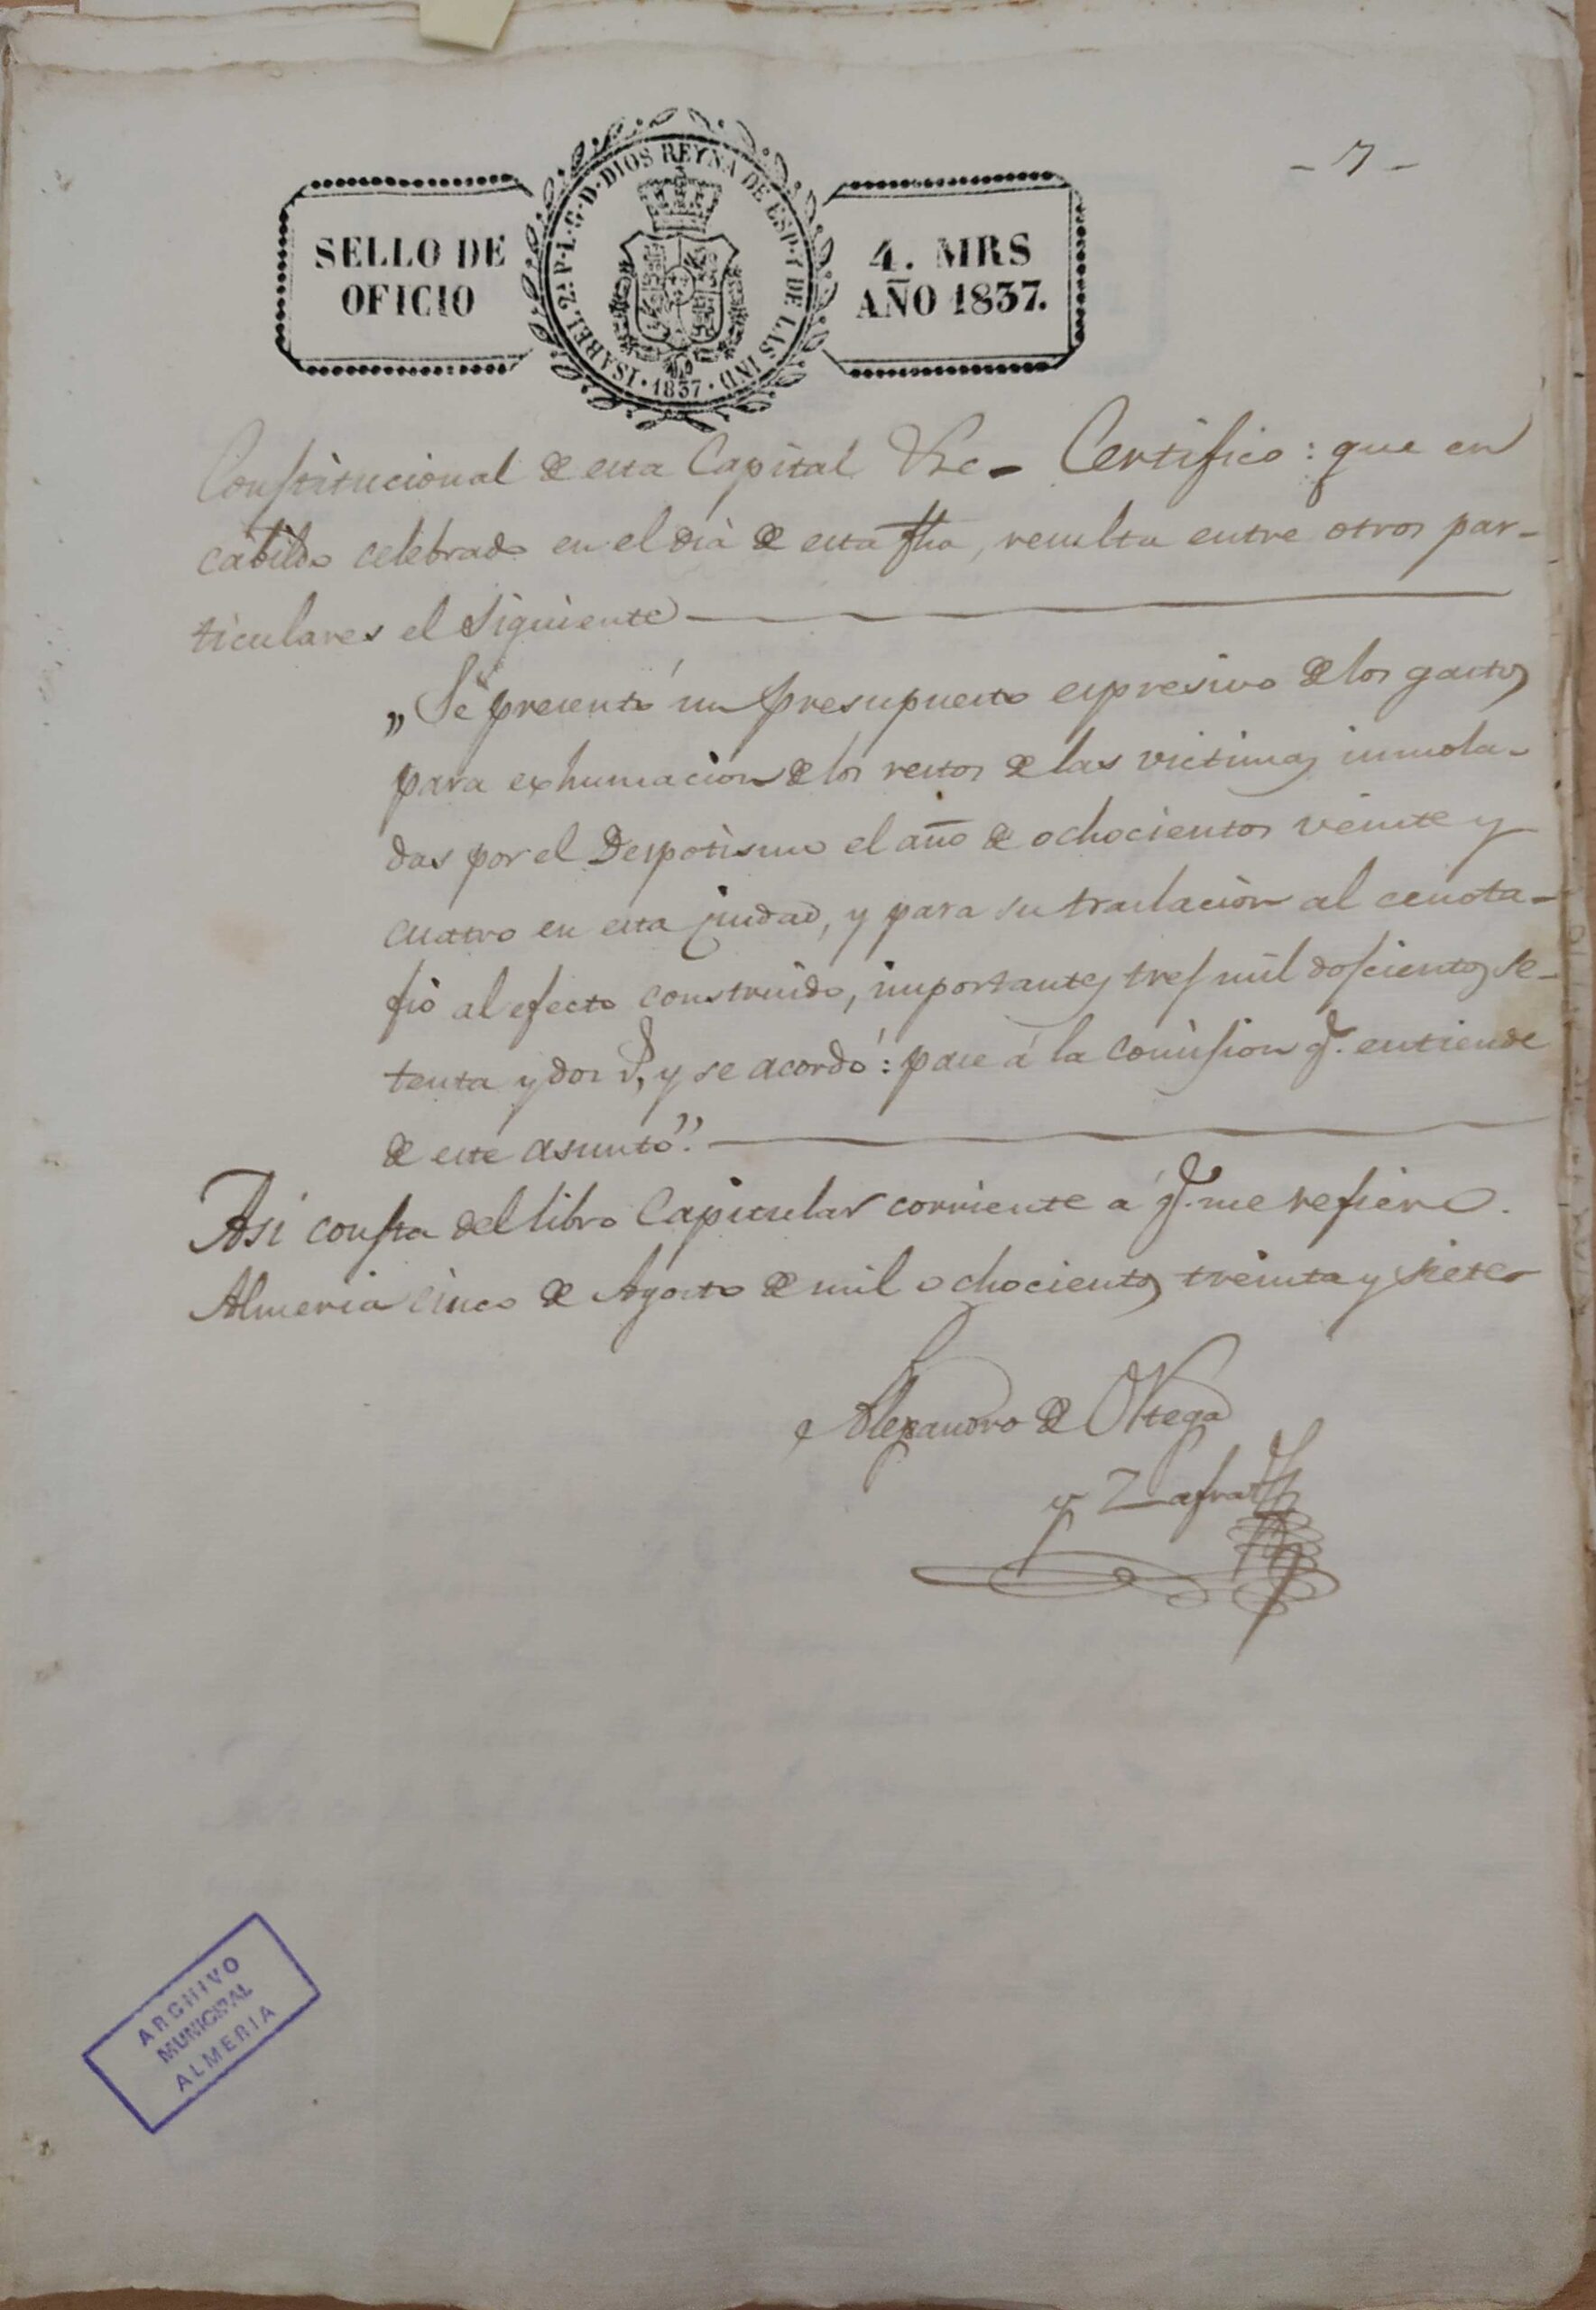 - 7 -
SELLO DE
OFICIO
ISABEL 2ª P. L. G. D. DIOS REYNA DE ESP. Y DE LAS IND.
· 1837 ·
4. MRS
AÑO 1837.
Constitucional de esta Capital &c - Certifico: que en
cabildo celebrado en el dia de esta fha, resulta entre otros par-
ticulares el siguiente
„Se presentó un presupuesto espresivo de los gastos
para exhumacion de los restos de las victimas inmola-
das por el Despotismo el año de ochocientos veinte y
cuatro en esta ciudad, y para su traslacion al cenota-
fio al efecto construido, importantes tres mil doscientos se-
tenta y dos r.s, y se acordó: pase á la comision q.e entiende
de este asunto”.
Asi consta del libro Capitular corriente á q.e me refiero.
Almeria cinco de Agosto de mil ochocientos treinta y siete
Alexandro de Ortega
y Zafra
ARCHIVO
MUNICIPAL
ALMERIA